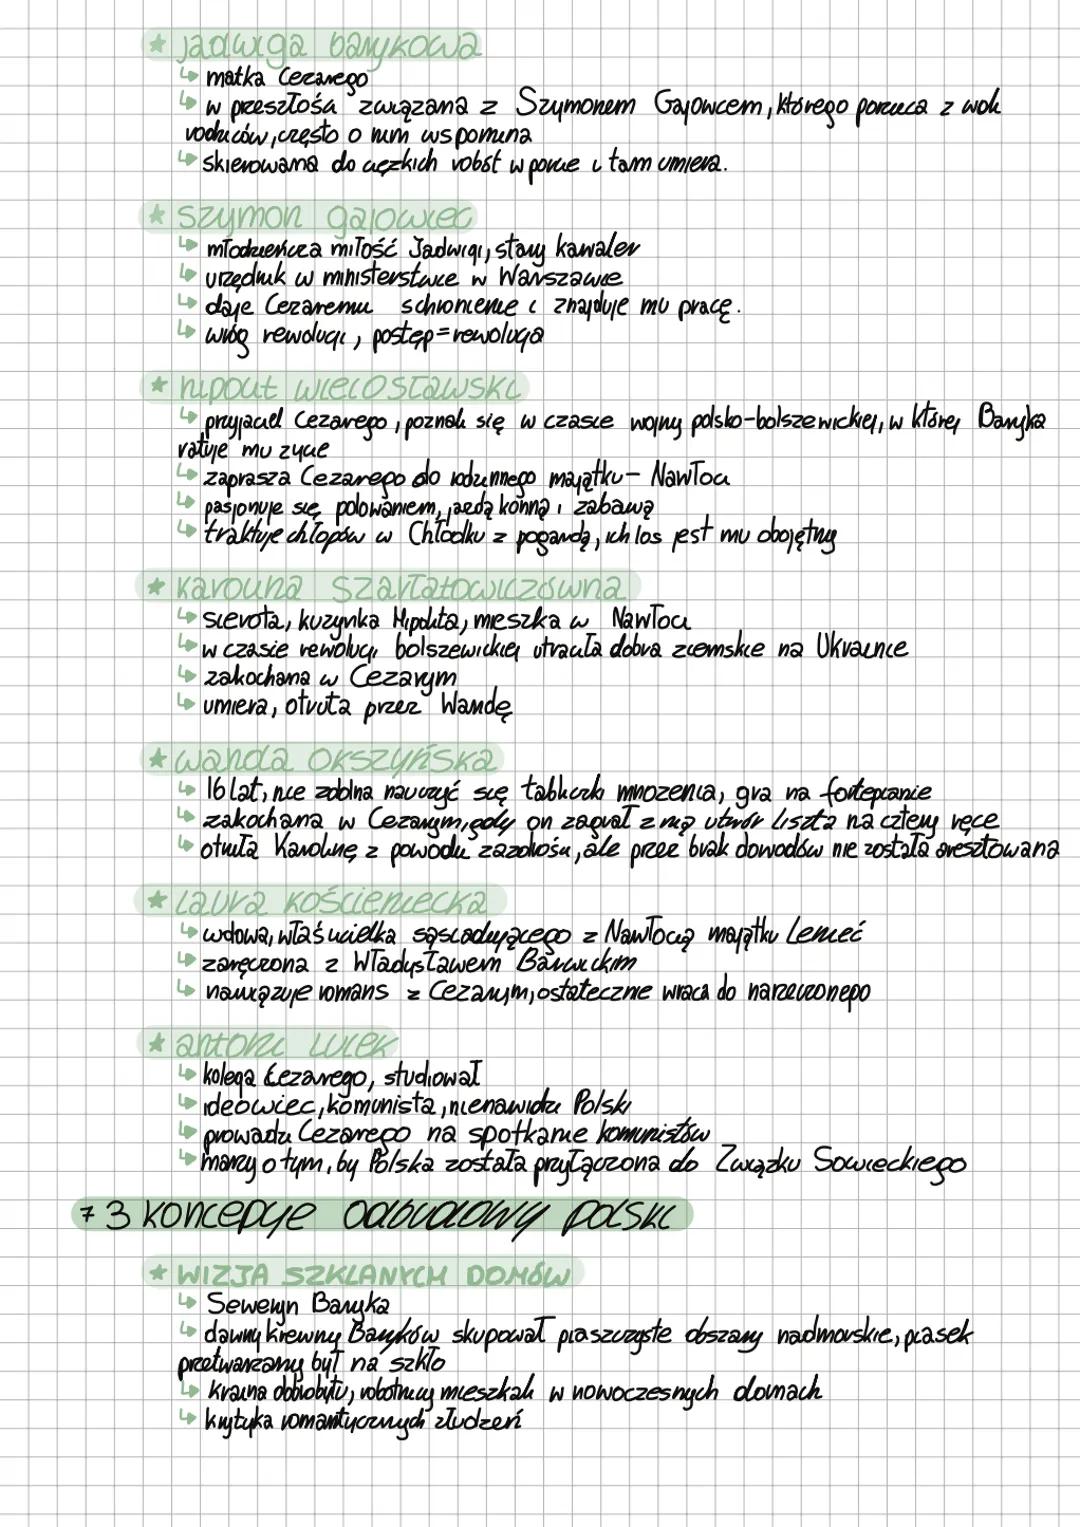 ★ jadwiga barykowa
↳ matka Cezarego
↳ w przeszłości związana z Szymonem Gajowcem, którego porzuca z woli
rodziców, często o nim wspomina
↳ skierowana do ciężkich robót w porcie i tam umiera.
★ szymon gajowiec
↳ młodzieńcza miłość Jadwigi, stary kawaler
↳ urzędnik w ministerstwie w Warszawie
↳ daje Cezaremu schronienie i znajduje mu pracę.
↳ wróg rewolucji, postęp=rewolucja
★ hipolit wielosławski
↳ przyjaciel Cezarego, poznali się w czasie wojny polsko-bolszewickiej, w której Baryka
ratuje mu życie
↳ zaprasza Cezarego do rodzinnego majątku - Nawłoci
↳ pasjonuje się polowaniem, jazdą konną i zabawą
↳ traktuje chłopów w Chłodku z pogardą, ich los jest mu obojętny
★ karolina szarłatowiczówna
↳ sierota, kuzynka Hipolita, mieszka w Nawłoci
↳ w czasie rewolucji bolszewickiej utraciła dobra ziemskie na Ukrainie
↳ zakochana w Cezarym
↳ umiera, otruta przez Wandę
★ wanda okszyńska
↳ 16 lat, nie zdolna nauczyć się tabliczki mnożenia, gra na fortepianie
↳ zakochana w Cezarym, gdy on zagrał z nią utwór Liszta na cztery ręce
↳ otruła Karolinę z powodu zazdrości, ale przez brak dowodów nie została aresztowana
★ laura kościeniecka
↳ wdowa, właścicielka sąsiadującego z Nawłocią majątku Leniec
↳ zaręczona z Władysławem Barwickim
↳ nawiązuje romans z Cezarym, ostatecznie wraca do narzeczonego
★ antoni lulek
↳ kolega Cezarego, studiował
↳ ideowiec, komunista, nienawidzi Polski
↳ prowadzi Cezarego na spotkanie komunistów
↳ marzy o tym, by Polska została przyłączona do Związku Sowieckiego
7 3 koncepcje odbudowy polski
★ WIZJA SZKLANYCH DOMÓW
↳ Seweryn Baryka
↳ dawny krewny Baryków skupował piaszczyste obszary nadmorskie, piasek
przetwarzany był na szkło
↳ kraina dobrobytu, robotnicy mieszkali w nowoczesnych domach
↳ krytyka romantycznych złudzeń